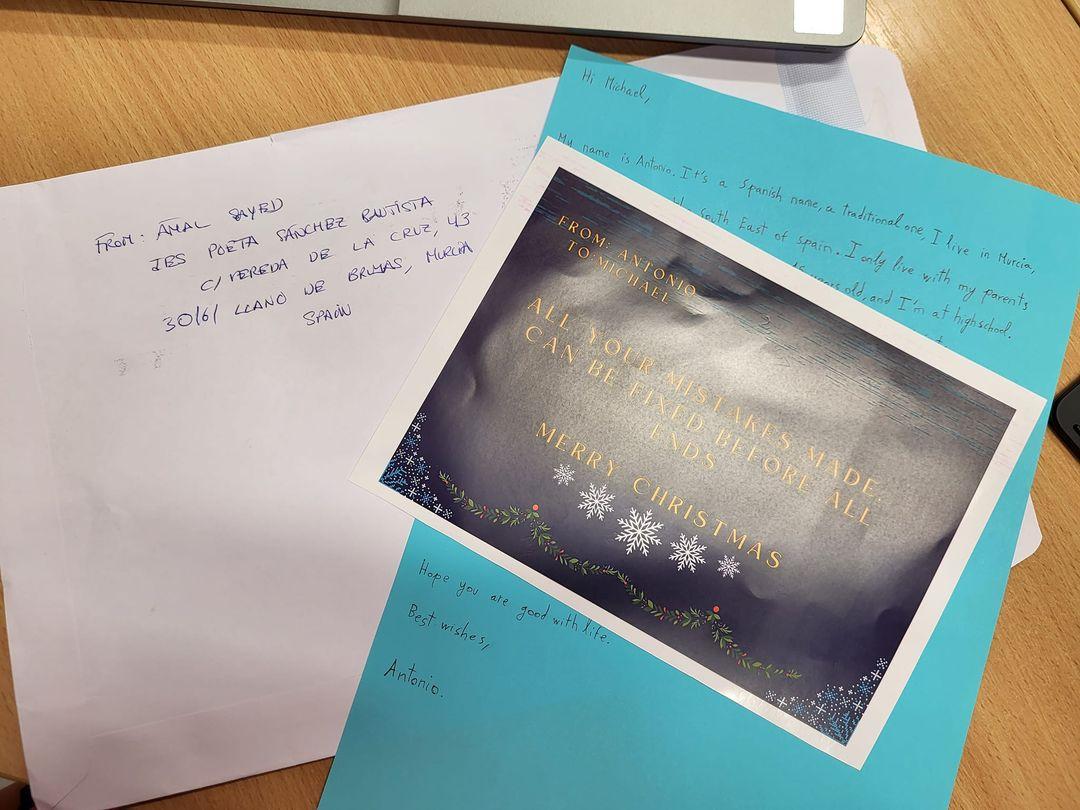 FROM: AMAL SAYED
IES POETA SÁNCHEZ BAUTISTA
C/ VEREDA DE LA CRUZ, 43
30161 LLANO DE BRUJAS, MURCIA
SPAIN
Hi Michael,
My name is Antonio. It's a Spanish name, a traditional one, I live in Murcia,
South East of Spain. I only live with my parents
years old, and I'm at highschool.
FROM: ANTONIO
TO: MICHAEL
ALL YOUR MISTAKES MADE,
CAN BE FIXED BEFORE ALL
ENDS
MERRY CHRISTMAS
Hope you are good with life.
Best wishes,
Antonio.